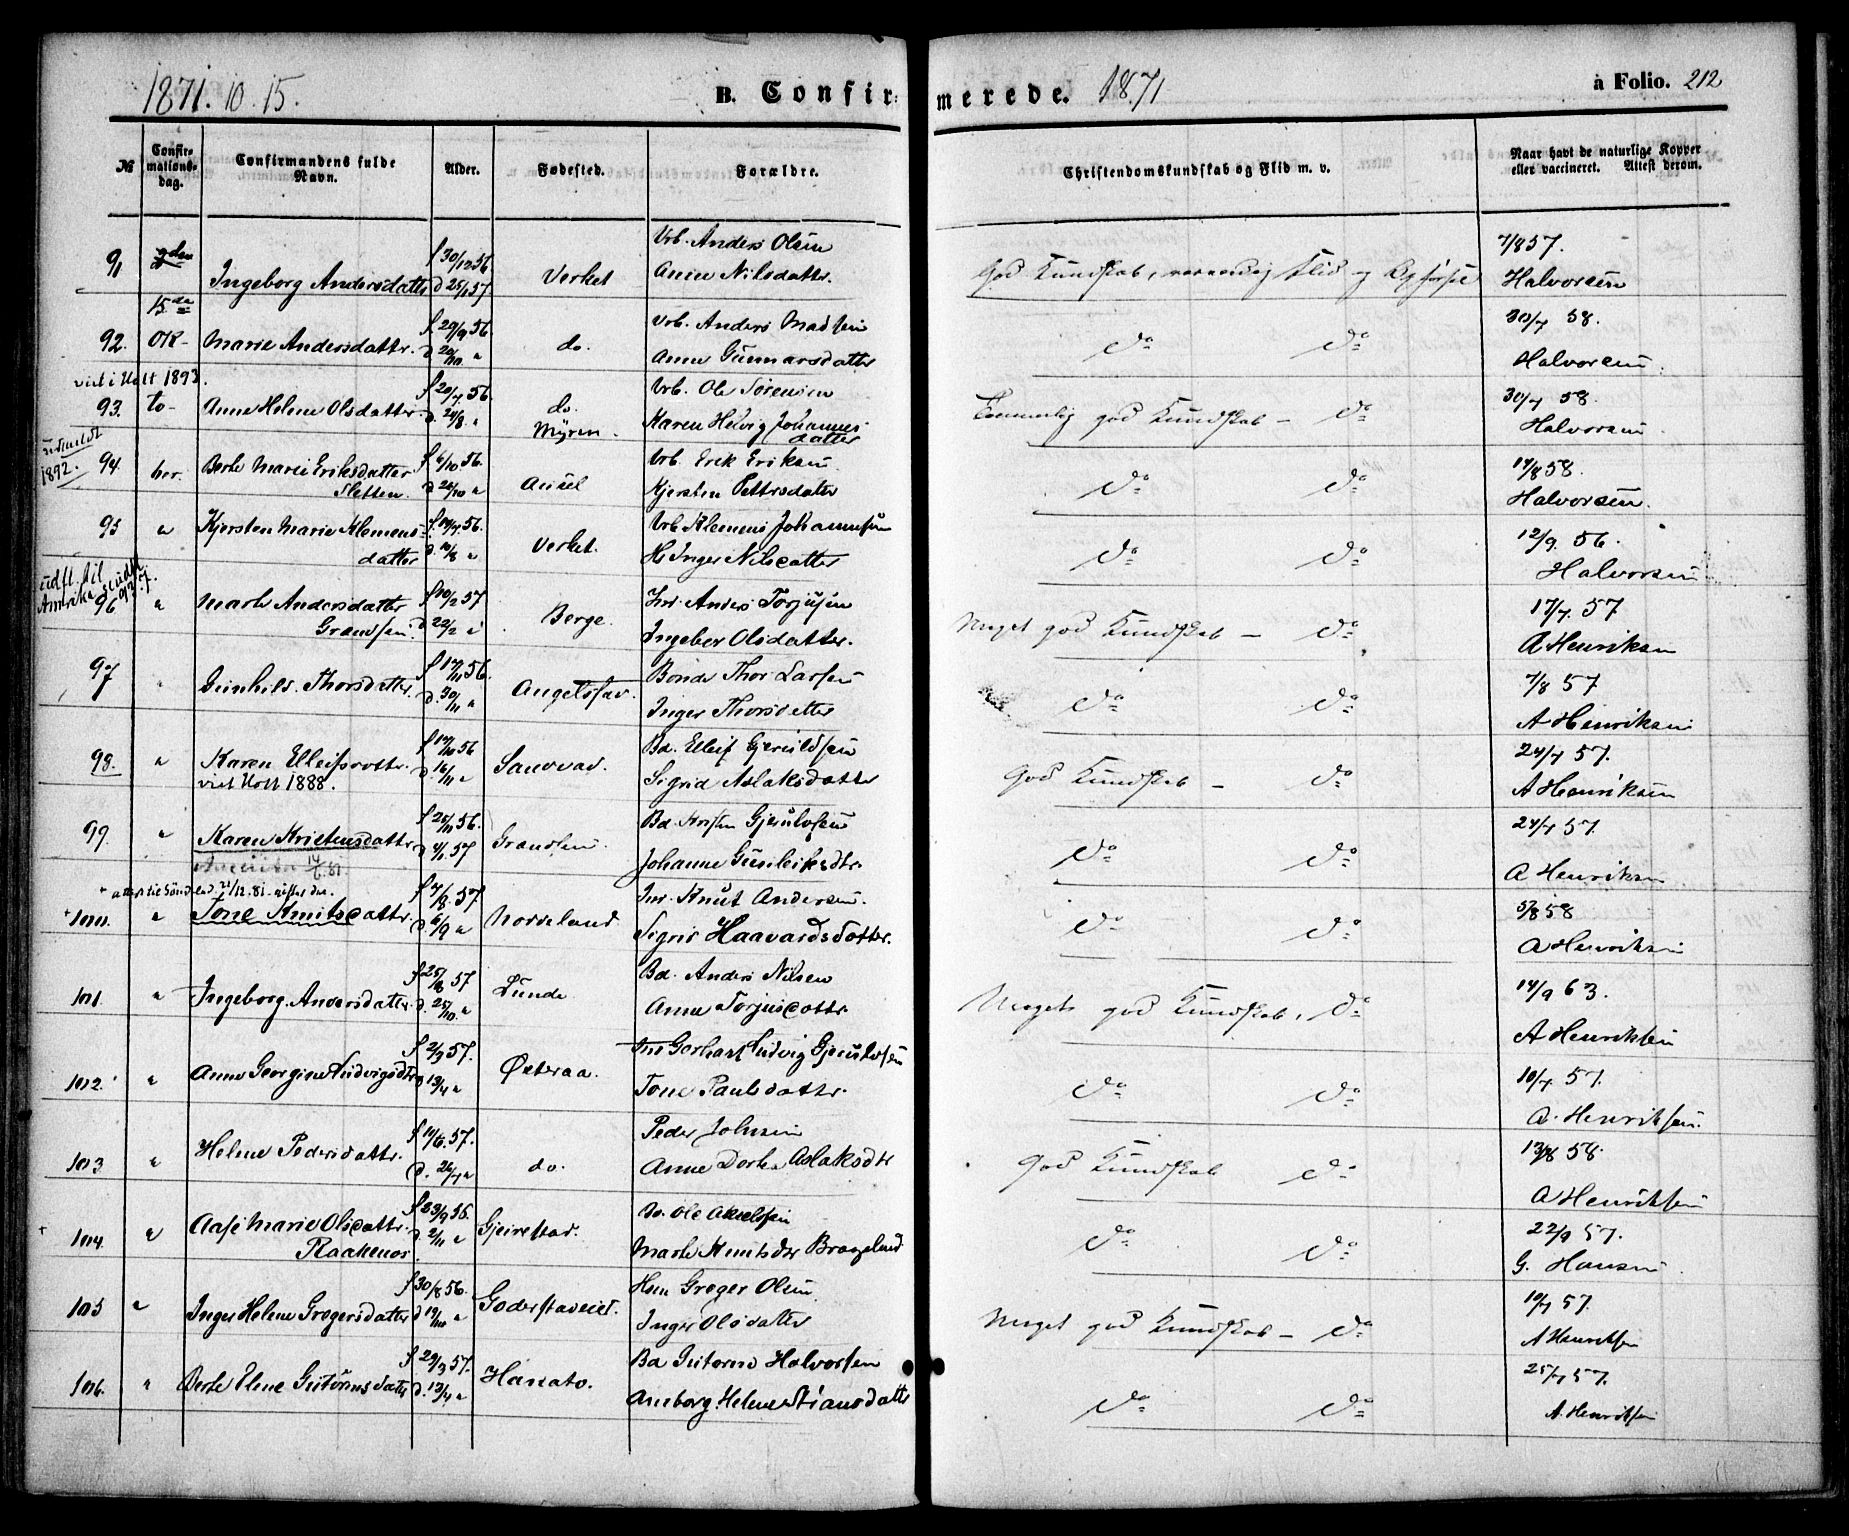 1871. 10. 15.
B. Confir=
merede. 1871
à Folio. 212
№
Confir=
mations=
dag.
Confirmandens fulde
Navn.
Alder.
Fødested.
Forældre.
Christendomskundskab og Flid m. v.
Naar havt de naturlige Kopper
eller vaccineret. Attest derom.
91 Ingeborg Andersdatter f 30/12 56 d 25/1 57 Verket
Arb. Anders Olsen
Anne Nilsdatter.
God Kundskab, Flid og Opførsel
7/8 57.
Halvorsen
15de
92. Okt- Marie Andersdattr. f 29/9 56. d. do.
Arb. Anders Madsen
Anne Gunnarsdatter
do do
30/7 58.
Halvorsen.
viet i Holt 1893.
93. to- Anne Helene Olsdatter. f 20/7. 56. d. 24/8. "
do. Myren.
Arb. Ole Sørensen
Karen Helvig Johannes
datter
Temmelig god Kundskab - do
30/7 58.
Halvorsen.
udmeldt
1892.
94. ber. Berte Marie Eriksdatter f 6/10 56.
Sletten.
Arb. Erik Eriksen
Kjersten Pettersdatter
do do
17/8 58.
Halvorsen.
95 " Kjersten Marie Klemens-
datter
Verket.
Arb Klemens Johannsen
H. Inger Nilsdatter
do do
12/9. 56.
Halvorsen
udfl. til
Amerika
96 " Marte Andersdatter f 10/2 57
d 22/2 " Berge.
Inr. Anders Torjusen
Ingeber Olsdatter.
Meget god Kundskab - do
17/7. 57
A Henriksen
97 Gunhild Thorsdatter. d. 30/11 " Angelstad.
Bonde Thor Larsen
Inger Thorsdatter
do do
7/8 57
A Henriksen
98. " Karen Elleifsdattr. d. 16/11 "
viet Holt 1888.
Sandvad.
Bd. Elleif Gjeruldsen
Sigrid Aslaksdatter
God Kundskab - do
24/7 57.
A Henriksen
99 " Karen Kristensdattr. d. 4/1. 57
Amerika 14/6. 81
Bd. Kristen Gjeruldsen
Johanne Gunleiksdtr.
do do
24/7 57.
A Henriksen
100. " Tone Knutsdattr. f 7/8. 57 d. 6/9 " Norreland
Inr. Knut Andersen.
Sigrid Haavardsdatter.
do do
5/8 58
A Henriksen
101. " Ingeborg Andersdatter. f 25/8 57 d. 25/10. " Lunde
Bd. Anders Nilsen
Anne Torjusdattr.
Meget god Kundskab, do
14/9 63.
A Henriksen
102. " Anne Georgine Ludvigsdtr f 2/3 57. d 13/4 " Østeraa.
Inr Gerhard Ludvig Gjeruldsen
Tone Paulsdattr.
do do
10/7. 57.
A. Henriksen.
103 " Helene Pedersdattr. f 11/6. 57. d. 26/7 " do.
Peder Johnsen
Anne Dorte Aslaksdtr
God Kundskab do
13/8 58.
A Henriksen
104. " Aase Marie Olsdattr. f 23/9 56. d. 2/11 " Gjeirestad.
Bd. Ole Akselsen
Marte Knutsdtr Brageland
do do
22/9 57.
G. Hansen.
105 " Inger Helene Gregersdatter f 30/8 56. d 19/10 " Goderstadveiet.
Hsm Greger Olsen
Inger Olsdatter
Meget god Kundskab - do
10/7 57.
A Henriksen
106. " Berte Elene Gutormsdatter f 29/3 57. d. 13/4 " Hanato.
Bd Gutorm Halvorsen
Aneborg Helene Stiansdatter
do do
25/7 57.
A. Henriksen